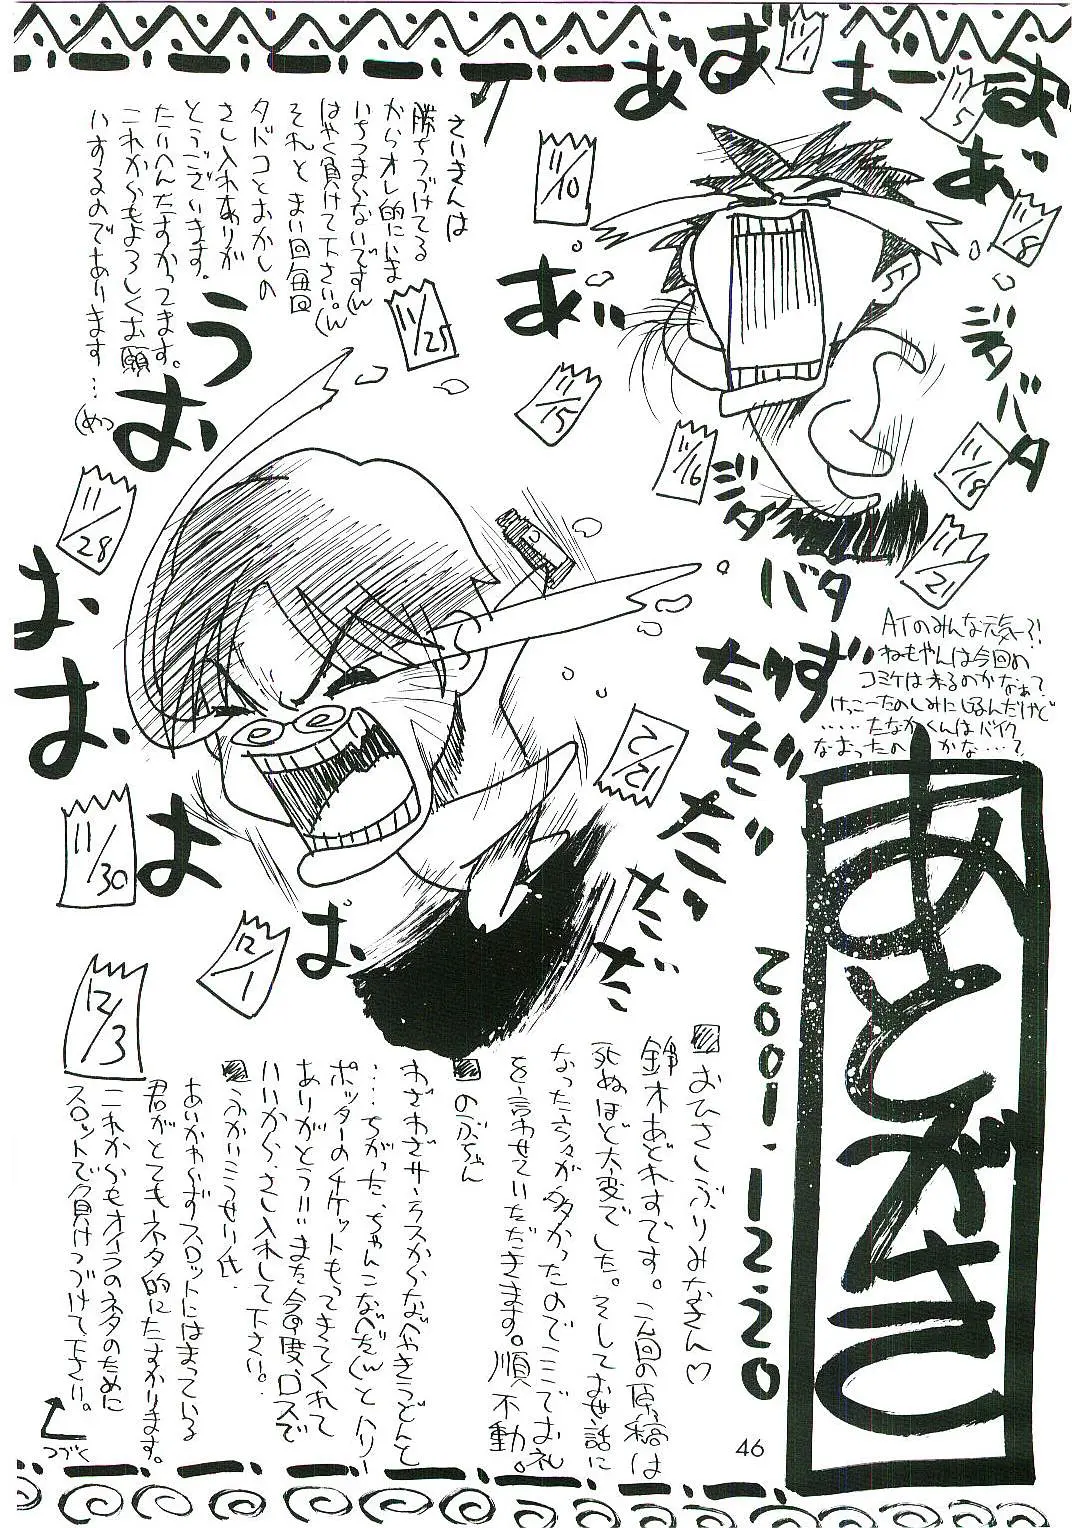 あとがき
2001.12.20
ATのみんな元気ー?!
ねもやんは今回の
コミケは来るのかなぁて
けっこーたのしみにしてるんだけど
‥‥たなかくんはバイク
なおったの かな…?
おひさしぶりみなさん♡
鈴木あどれすです。今回の原稿は
死ぬほど大変でした。そしてお世話に
なった方々が多かったのでここでお礼
を言わせていただきます。順不動。
のぶちゃん
わざわざサーラスからなべやきうどんと
…ちがった、ちゃんこなべだ(んとハリー
ポッターのチケットもってきてくれて
ありがとうっいまた今度、ロスで
いいから、さし入れして下さい。
ふかいこうせい氏
あいかわらずスロットにはまっている
君がとてもネタ的にたすかります。
これからもオイラのネタのために
スロットで負けつづけて下さい。
つづく
さいきんは
勝ちつづけてる
からオレ的にいま
いちつまらないです(ん
はやく負けて下さい。(ん
それと まい回毎回
タドコとおかしの
さし入れありが
とうございます。
たいへんたすかってます。
これからもよろしくお願
いするのであります…
(めっ
あ゛
ば
ま゛ー
お
あ゛
あ゛
ジタバタ
ジタ
バタ
うお
おお
よ
ぱ
ずだだだだだだだ
11/1
11/5
11/8
11/10
11/15
11/16
11/18
11/21
11/25
11/28
11/30
12/1
12/2
12/3
46